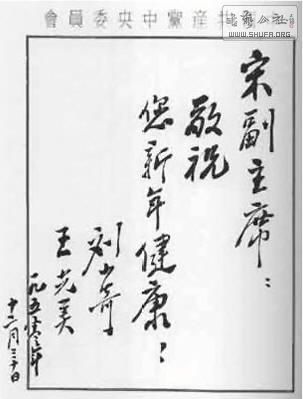 共產黨中央委員會
書藝公社
WWW.SHUFA.ORG
宋副主席：
敬祝
您新年健康！
刘少奇
王光美
一九五年
十二月三十日